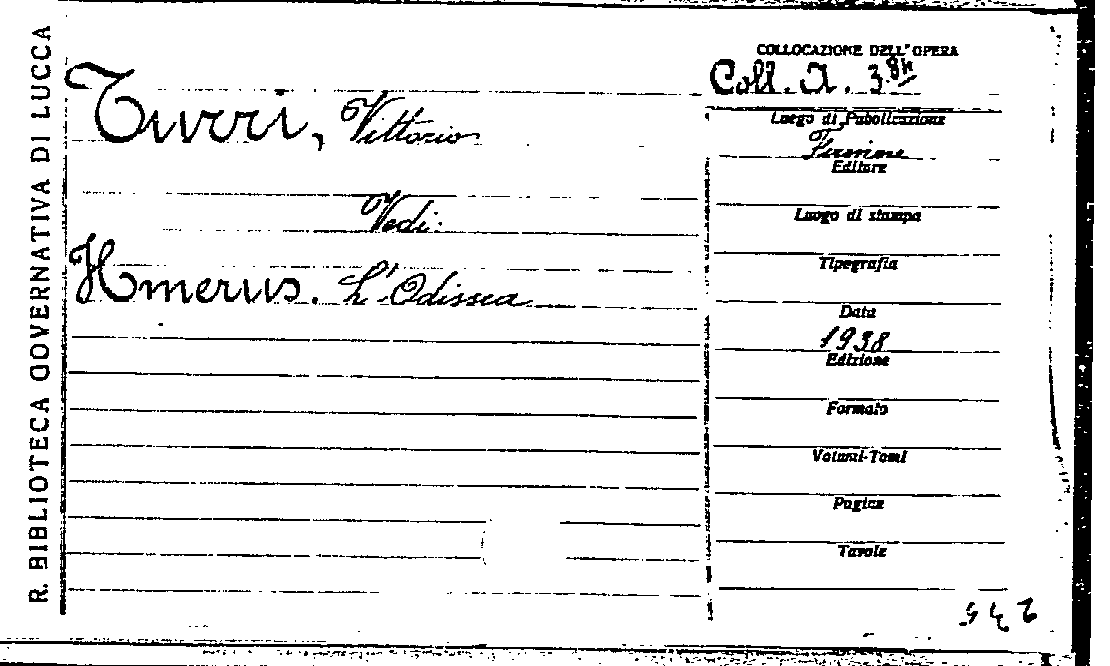 R. BIBLIOTECA GOVERNATIVA DI LUCCA
Turri, Vittorio
Vedi:
Homerus. L'Odissea
COLLOCAZIONE DELL'OPERA
Coll. A. 3.84
Luogo di Pubblicazione
Firenze
Editore
Luogo di stampa
Tipografia
Data
1938
Edizione
Formato
Volumi-Tomi
Pagine
Tavole